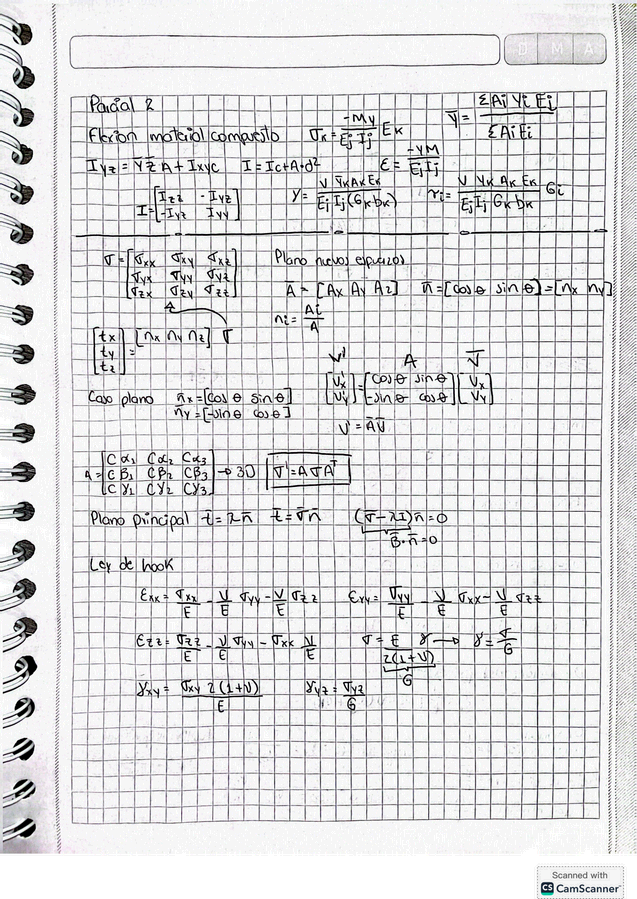 D M A
Parcial 2
Flexion material compuesto σx = -My / Ej Ij Ek ȳ = ΣAi Yi Ei / ΣAi Ei
Iyz = ȳ z̄ A + Ixyc I = Ic + A·d² ε = -yM / Ej Ij
I = [Izz -Iyz; -Iyz Iyy] γ = V ȳk Ak Ek / Ej Ij (Gk bk) τi = V Yk Ak Ek / Ej Ij Gk bk Gi
σ = [σxx σxy σxz; σyx σyy σyz; σzx σzy σzz] Plano nuevos esfuerzos
A = [Ax Ay Az] n̄ = [cosθ sinθ] = [nx ny]
ni = Ai / A
[tx; ty; tz] = [nx ny nz] σ
V' A V̄
Caso plano n̄x = [cosθ sinθ] [Vx'; Vy'] = [cosθ sinθ; -sinθ cosθ] [Vx; Vy]
n̄y = [-sinθ cosθ]
V' = ĀV̄
A = [Cα1 Cα2 Cα3; Cβ1 Cβ2 Cβ3; Cγ1 Cγ2 Cγ3] → 3D σ' = A σ Aᵀ
Plano principal t̄ = λn̄ t̄ = σ̄n̄ (σ̄ - λI)n̄ = 0
B̄·n̄ = 0
Ley de hook
εxx = σxx/E - ν/E σyy - ν/E σzz εyy = σyy/E - ν/E σxx - ν/E σzz
εzz = σzz/E - ν/E σyy - σxx ν/E σ = E / 2(1+ν) γ → γ = σ/G
G
γxy = σxy 2(1+ν) / E γyz = σyz / G
Scanned with
CS CamScanner